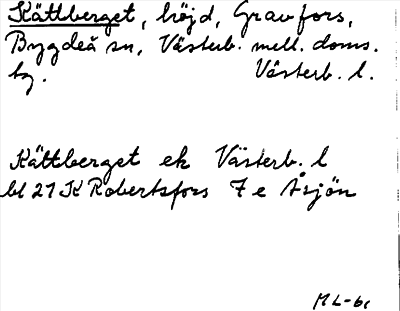 Kättberget, höjd, Gravfors,
Bygdeå sn, Västerb. mell. doms.
by. Västerb. l.
Kättberget ek Västerb. l
bl 21 K Robertsfors 7 e Åsjön
ML-61